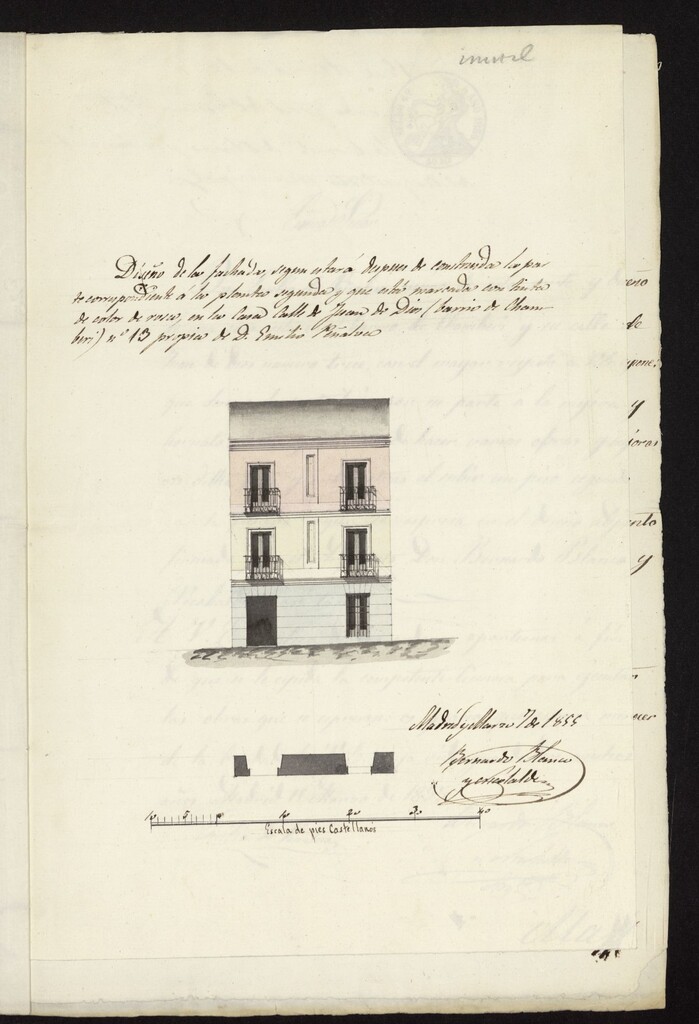 inutil
Diseño de la fachada, segun estará despues de construida la par
te correspondiente á la planta segunda y que está marcada con tinta
de color de rosa, en la Casa Calle de Juan de Dios (barrio de Cham
beri) nº 13 propia de D. Emilio Peñalver
Madrid y Marzo 7 de 1855
Bernardo Blanco
y
10 5 0 10 20 30 40
Escala de pies Castellanos